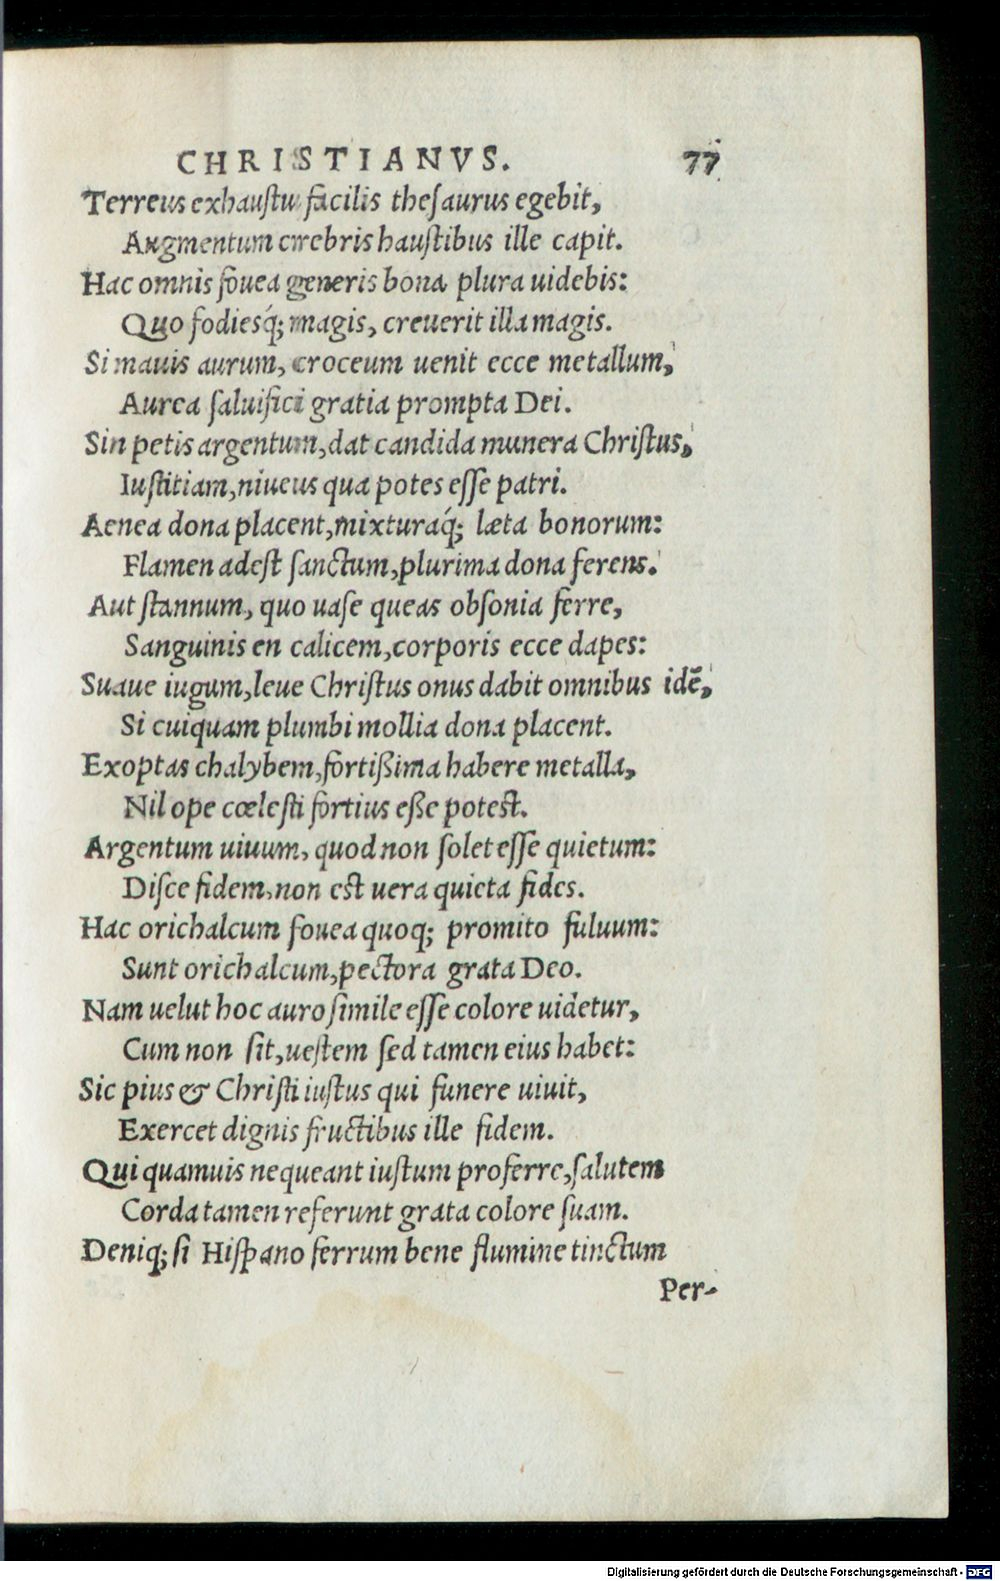 CHRISTIANVS. 77
Terreus exhaustu facilis thesaurus egebit,
Augmentum crebris haustibus ille capit.
Hac omnis fouea generis bona plura uidebis:
Quo fodiesq́; magis, creuerit illa magis.
Si mauis aurum, croceum uenit ecce metallum,
Aurea saluifici gratia prompta Dei.
Sin petis argentum, dat candida munera Christus,
Iustitiam, niueus qua potes esse patri.
Aenea dona placent, mixturaq́; læta bonorum:
Flamen adest sanctum, plurima dona ferens.
Aut stannum, quo uase queas obsonia ferre,
Sanguinis en calicem, corporis ecce dapes:
Suaue iugum, leue Christus onus dabit omnibus idē,
Si cuiquam plumbi mollia dona placent.
Exoptas chalybem, fortißima habere metalla,
Nil ope cœlesti fortius eße potest.
Argentum uiuum, quod non solet esse quietum:
Disce fidem, non est uera quieta fides.
Hac orichalcum fouea quoq; promito fuluum:
Sunt orichalcum, pectora grata Deo.
Nam uelut hoc auro simile esse colore uidetur,
Cum non sit, uestem sed tamen eius habet:
Sic pius & Christi iustus qui funere uiuit,
Exercet dignis fructibus ille fidem.
Qui quamuis nequeant iustum proferre, salutem
Corda tamen referunt grata colore suam.
Deniq; si Hispano ferrum bene flumine tinctum
Per-
Digitalisierung gefördert durch die Deutsche Forschungsgemeinschaft - DFG